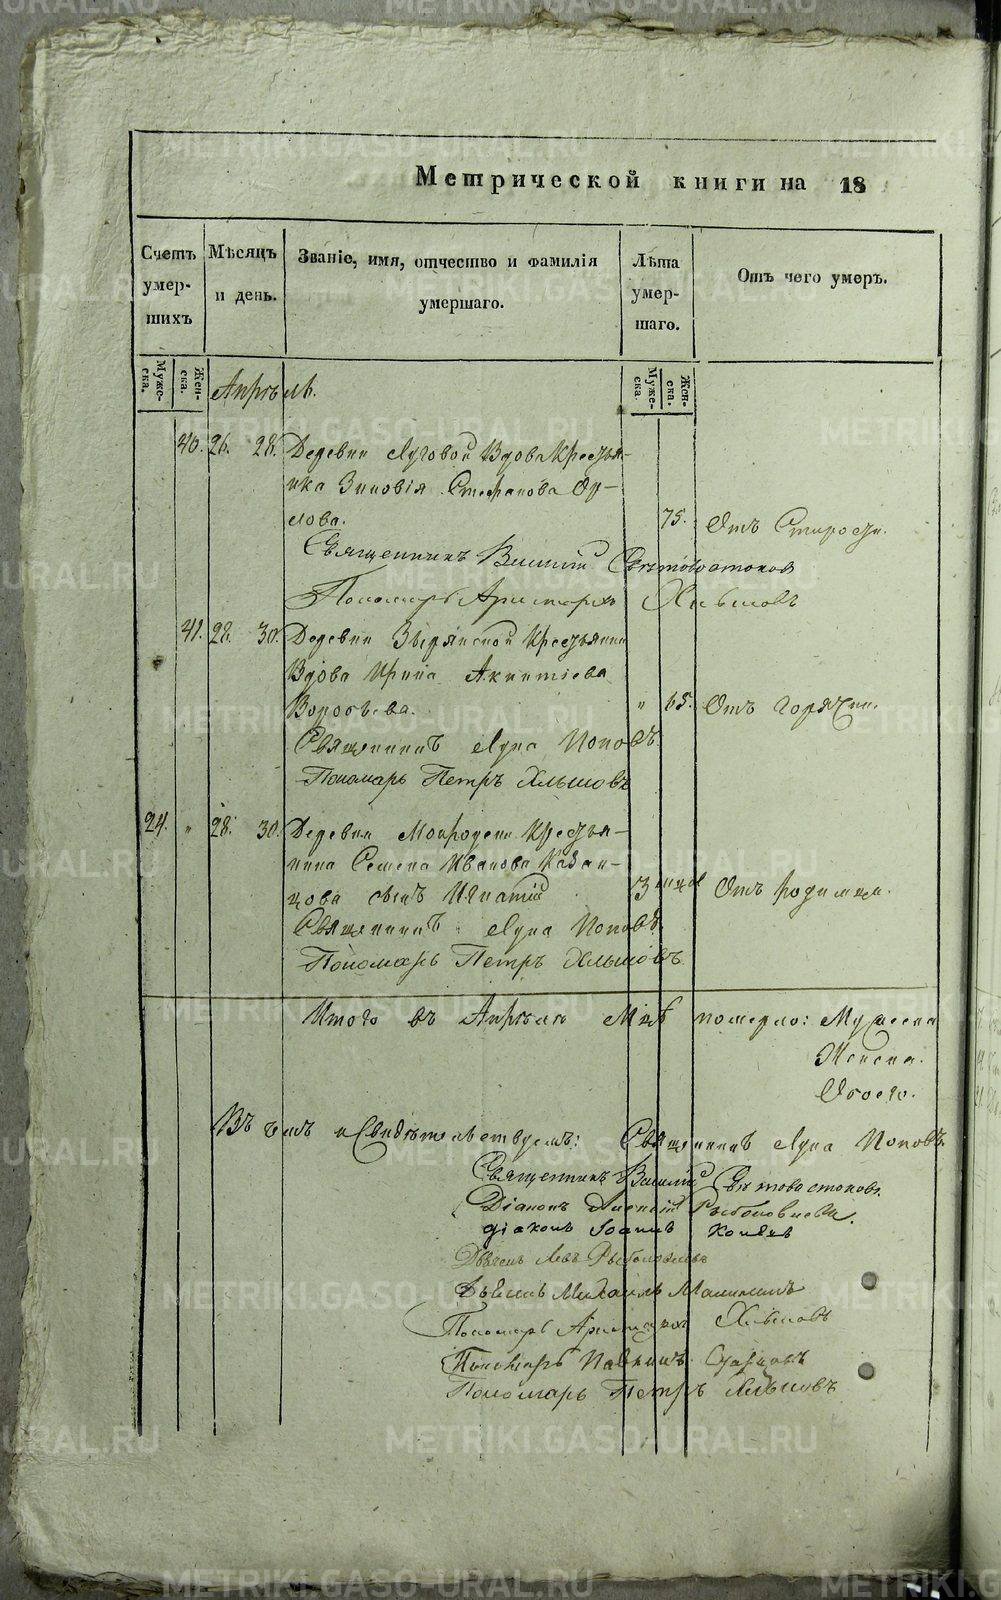 Метрической книги на 18
Счетъ умершихъ
Мѣсяцъ и день.
Званіе, имя, отчество и фамилія умершаго.
Лѣта умершаго.
Отъ чего умеръ.
Мужеска.
Женска.
Мужеска.
Женска.
Апрѣль.
40. 26. 28. Деревни Луговой Вдова Крестьян-
ка Зиновія Стефанова Ор-
лова. 75. Отъ Старости.
Священникъ Василій Свѣтовостоковъ
Пономарь Аристархъ Хлыновъ
41. 28. 30. Деревни Крестьянина
Вдова Ирина Акинтіева
Воробьева. " 65. Отъ горячки.
Священникъ Лука Поповъ
Пономарь Петръ Хлыновъ
24. " 28. 30. Деревни Мокродени Крестья-
нина Семена Иванова Казан-
цова сынъ Игнатій 3 мѣц Отъ родимца.
Священникъ Лука Поповъ
Пономарь Петръ Хлыновъ
Итого въ Апрѣлѣ Мцѣ померло: Мужеска
Женска.
Обоего.
Въ чемъ и Свидѣтельствуемъ: Священникъ Лука Поповъ
Священникъ Василій Свѣтовостоковъ.
Діаконъ Алексій
діаконъ Іоаннъ
Дьячекъ Левъ
Дьячекъ Михаилъ Мамин
Пономарь Аристархъ Хлыновъ
Пономарь
Пономарь Петръ Хлыновъ
METRIKI.GASO-URAL.RU